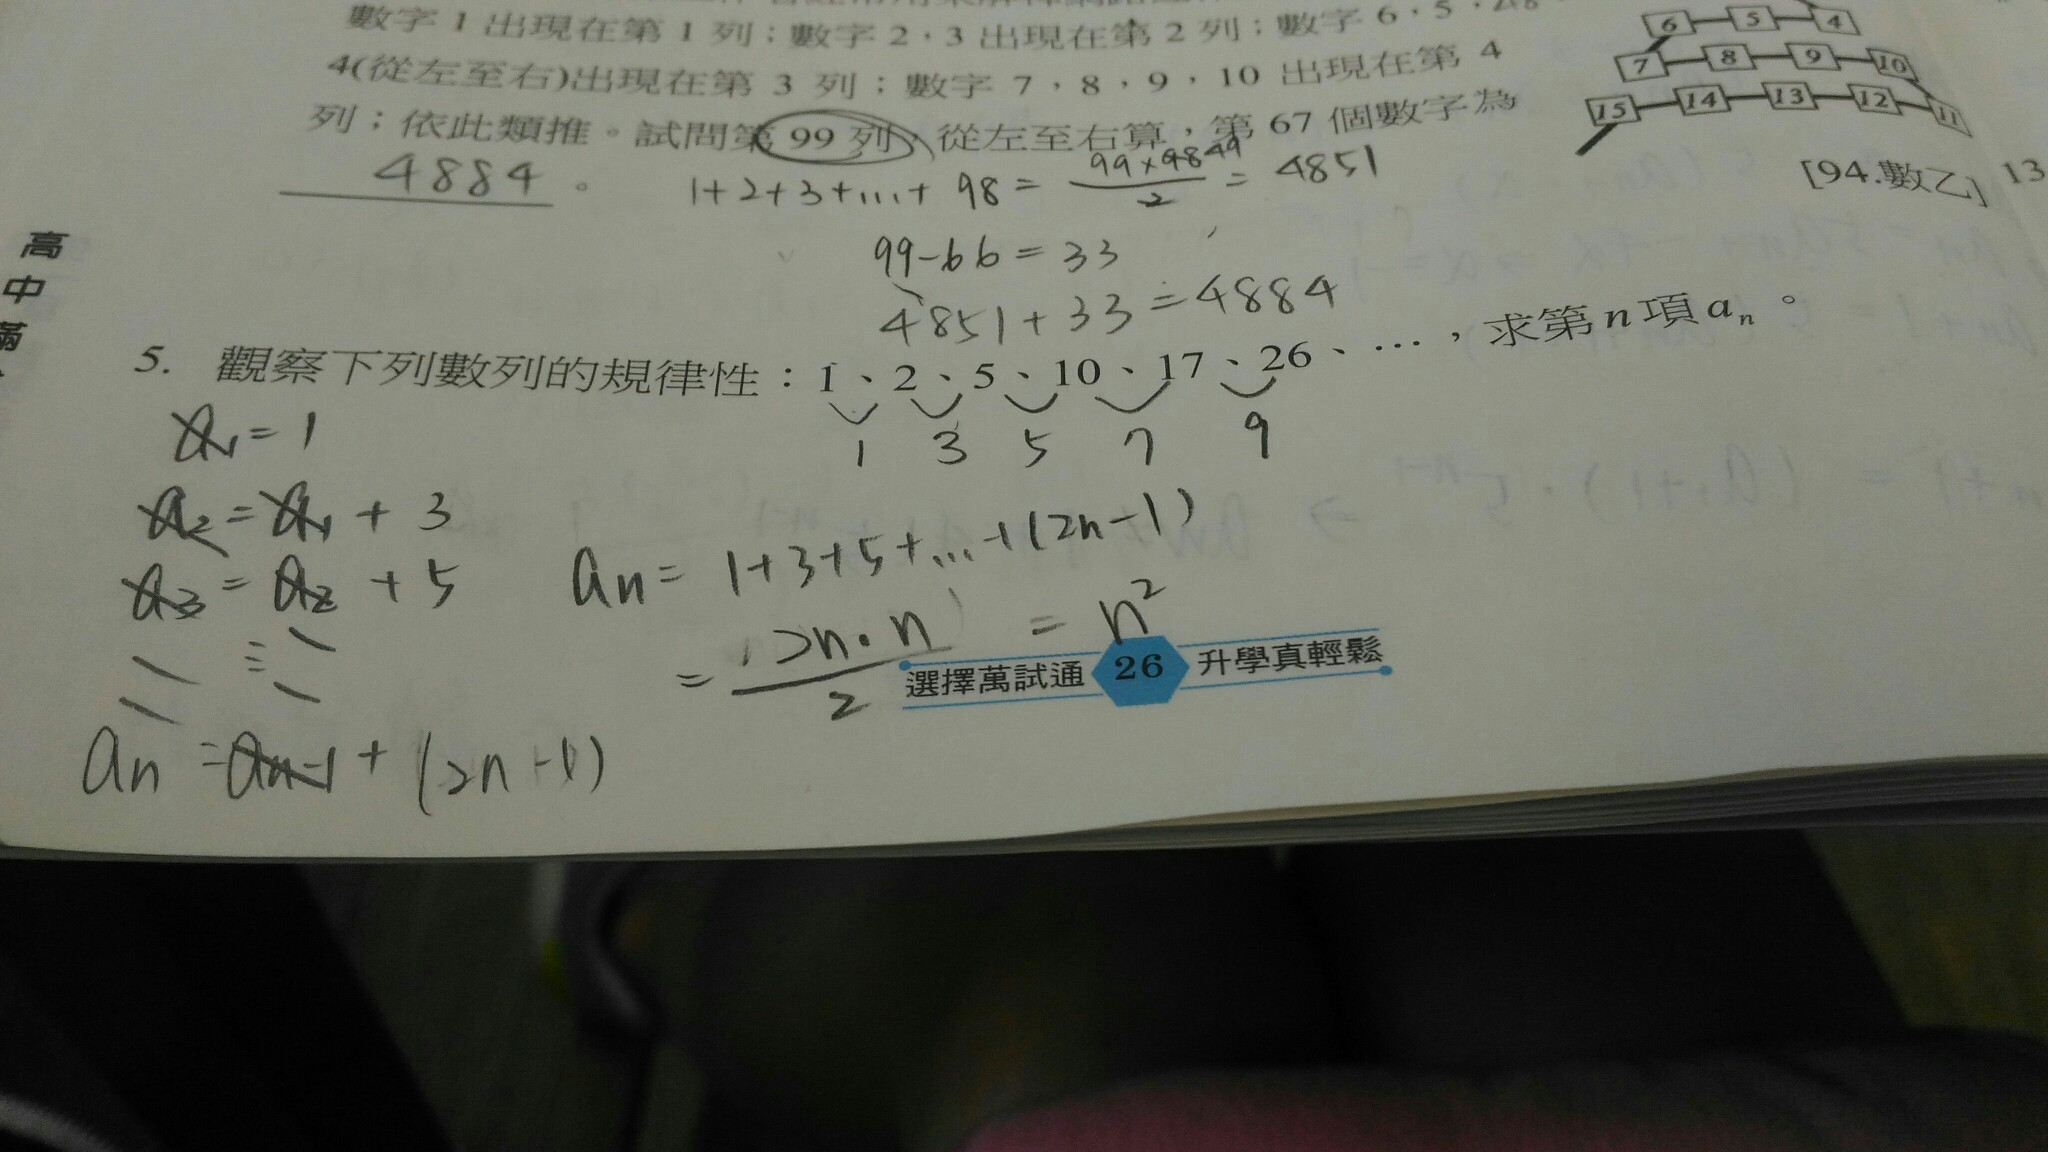 數字1出現在第1列；數字2，3出現在第2列；數字6，5，
4(從左至右)出現在第3列；數字7，8，9，10出現在第4
列；依此類推。試問第99列，從左至右算，第67個數字為
4884。
[94.數乙]
13
6 5 4
7 8 9 10
15 14 13 12 11
1+2+3+...+98=99×98 49/2=4851
99-66=33
4851+33=4884
高中
5. 觀察下列數列的規律性：1、2、5、10、17、26、…，求第n項aₙ。
1 3 5 7 9
a₁=1
a₂=a₁+3
a₃=a₂+5
aₙ=aₙ₋₁+(2n-1)
aₙ=1+3+5+...+(2n-1)
=2n·n/2=n²
選擇萬試通 26 升學真輕鬆